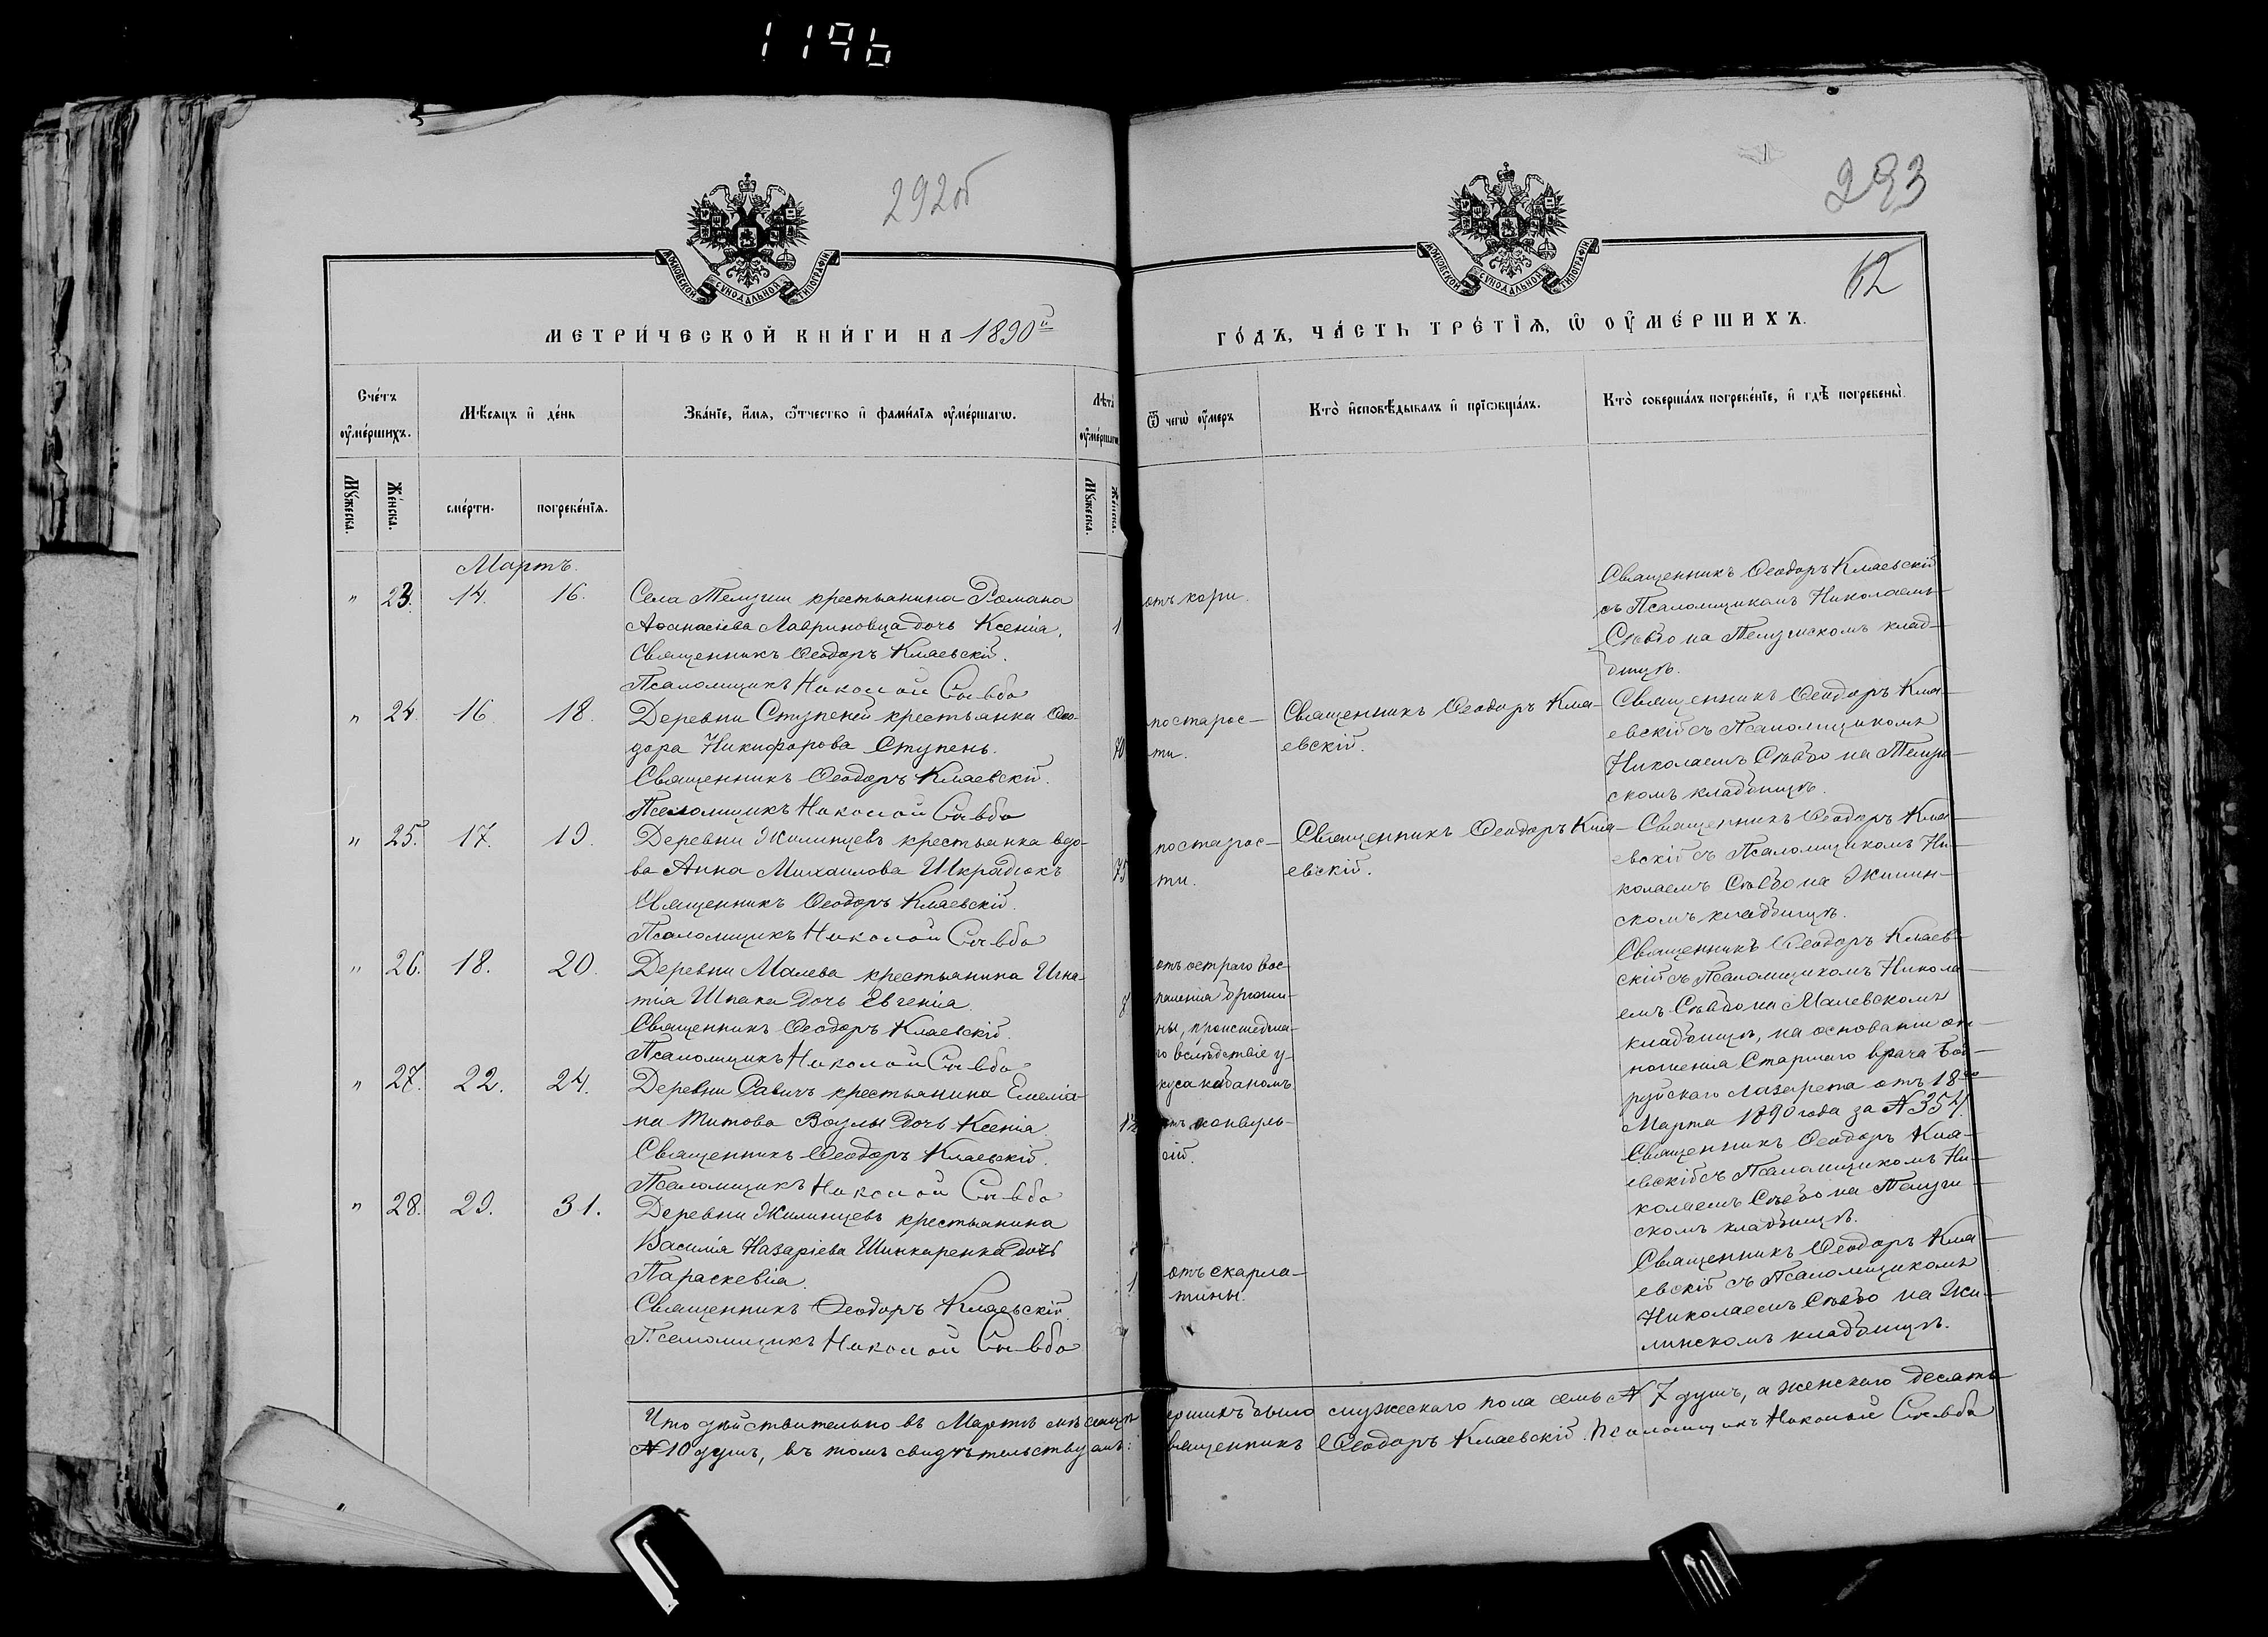 1196
292об
293
12
МОСКОВСКОЙ СѴНОДАЛЬНОЙ ТИПОГРАФІИ
МОСКОВСКОЙ СѴНОДАЛЬНОЙ ТИПОГРАФІИ
МЕТРИ́ЧЕСКОЙ КНИ́ГИ НА 1890й
ГО́ДЪ, ЧА́СТЬ ТРЕ́ТЇѦ, Ѡ ОУ҆МЕ́РШИХЪ.
Сче́тъ оу҆ме́ршихъ.
Мѣ́сяцъ и҆ де́нь
Зва́нїе, и҆́мя, ѻ҆́тчество и҆ фами́лїя оу҆ме́ршагѡ.
Лѣта̀ оу҆ме́ршагѡ
Ѿ чегѡ̀ оу҆́меръ
Кто̀ и҆сповѣ́дывалъ и҆ прїѡбща́лъ.
Кто̀ соверша́лъ погребе́нїе, и҆ гдѣ̀ погребены̀.
Му́жеска.
Же́нска.
сме́рти.
погребе́нїя.
Му́жеска.
Же́нска.
Мартъ.
" 23. 14. 16.
Села Телуши крестьянина Романа
Аѳанасіева Лавриновца дочь Ксенія.
Священникъ Ѳеодоръ Кляевскій.
Псаломщикъ Николай Сѣвбо
1
отъ кори.
Священникъ Ѳеодоръ Кляевскій
съ Псаломщикомъ Николаемъ
Сѣвбо на Телушскомъ клад-
бищѣ.
" 24. 16. 18.
Деревни Ступеней крестьянка Ѳео-
дора Никифорова Ступень.
Священникъ Ѳеодоръ Кляевскій.
Псаломщикъ Николай Сѣвбо
70
по старос-
ти.
Священникъ Ѳеодоръ Кля-
евскій.
Священникъ Ѳеодоръ Кля-
евскій съ Псаломщикомъ
Николаемъ Сѣвбо на Телуш-
скомъ кладбищѣ.
" 25. 17. 19.
Деревни Жилинцевъ крестьянка вдо-
ва Анна Михаилова Шкрадюкъ
Священникъ Ѳеодоръ Кляевскій.
Псаломщикъ Николай Сѣвбо
75
по старос-
ти.
Священникъ Ѳеодоръ Кля-
евскій.
Священникъ Ѳеодоръ Кля-
евскій съ Псаломщикомъ Ни-
колаемъ Сѣвбо на Жилин-
скомъ кладбищѣ.
" 26. 18. 20.
Деревни Малева крестьянина Игна-
тія Шпака дочь Евгенія.
Священникъ Ѳеодоръ Кляевскій.
Псаломщикъ Николай Сѣвбо
8
отъ остраго вос-
паленія брюши-
ны, происшедша-
го вслѣдствіе у-
куса кабаномъ
Священникъ Ѳеодоръ Кляев-
скій съ Псаломщикомъ Никола-
емъ Сѣвбо на Малевскомъ
кладбищѣ, на основаніи от-
ношенія Старшаго врача Боб-
руйскаго Лазарета отъ 18го
Марта 1890 года за № 354.
" 27. 22. 24.
Деревни Савичъ крестьянина Емеліа-
на Титова Воулы дочь Ксенія.
Священникъ Ѳеодоръ Кляевскій.
Псаломщикъ Николай Сѣвбо
отъ конвуль-
сій.
Священникъ Ѳеодоръ Кля-
евскій съ Псаломщикомъ Ни-
колаемъ Сѣвбо на Телуш-
скомъ кладбищѣ.
" 28. 29. 31.
Деревни Жилинцевъ крестьянина
Василія Назаріева Шинкаренка дочь
Параскевіа.
Священникъ Ѳеодоръ Кляевскій.
Псаломщикъ Николай Сѣвбо
1
отъ скарла-
тины.
Священникъ Ѳеодоръ Кля-
евскій съ Псаломщикомъ
Николаемъ Сѣвбо на Жи-
линскомъ кладбищѣ.
Что дѣйствительно въ Мартѣ мѣсяцѣ ершихъ было мужескаго пола семь № 7 душъ, а женскаго десять
№ 10 душъ, въ томъ свидѣтельствуемъ: Священникъ Ѳеодоръ Кляевскій. Псаломщикъ Николай Сѣвбо